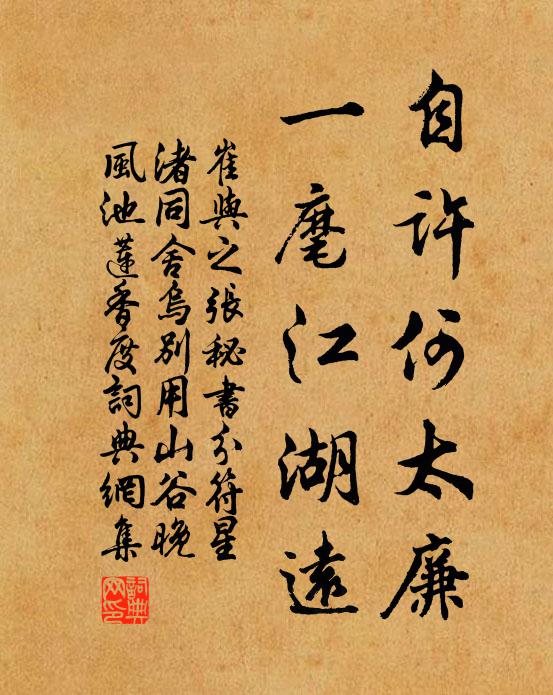 自許何太廉
一麾江湖遠
崔與之張秘書分符星
渚同舍烏別用山谷晚
風池蓮香度詞典網集
詞典
网印